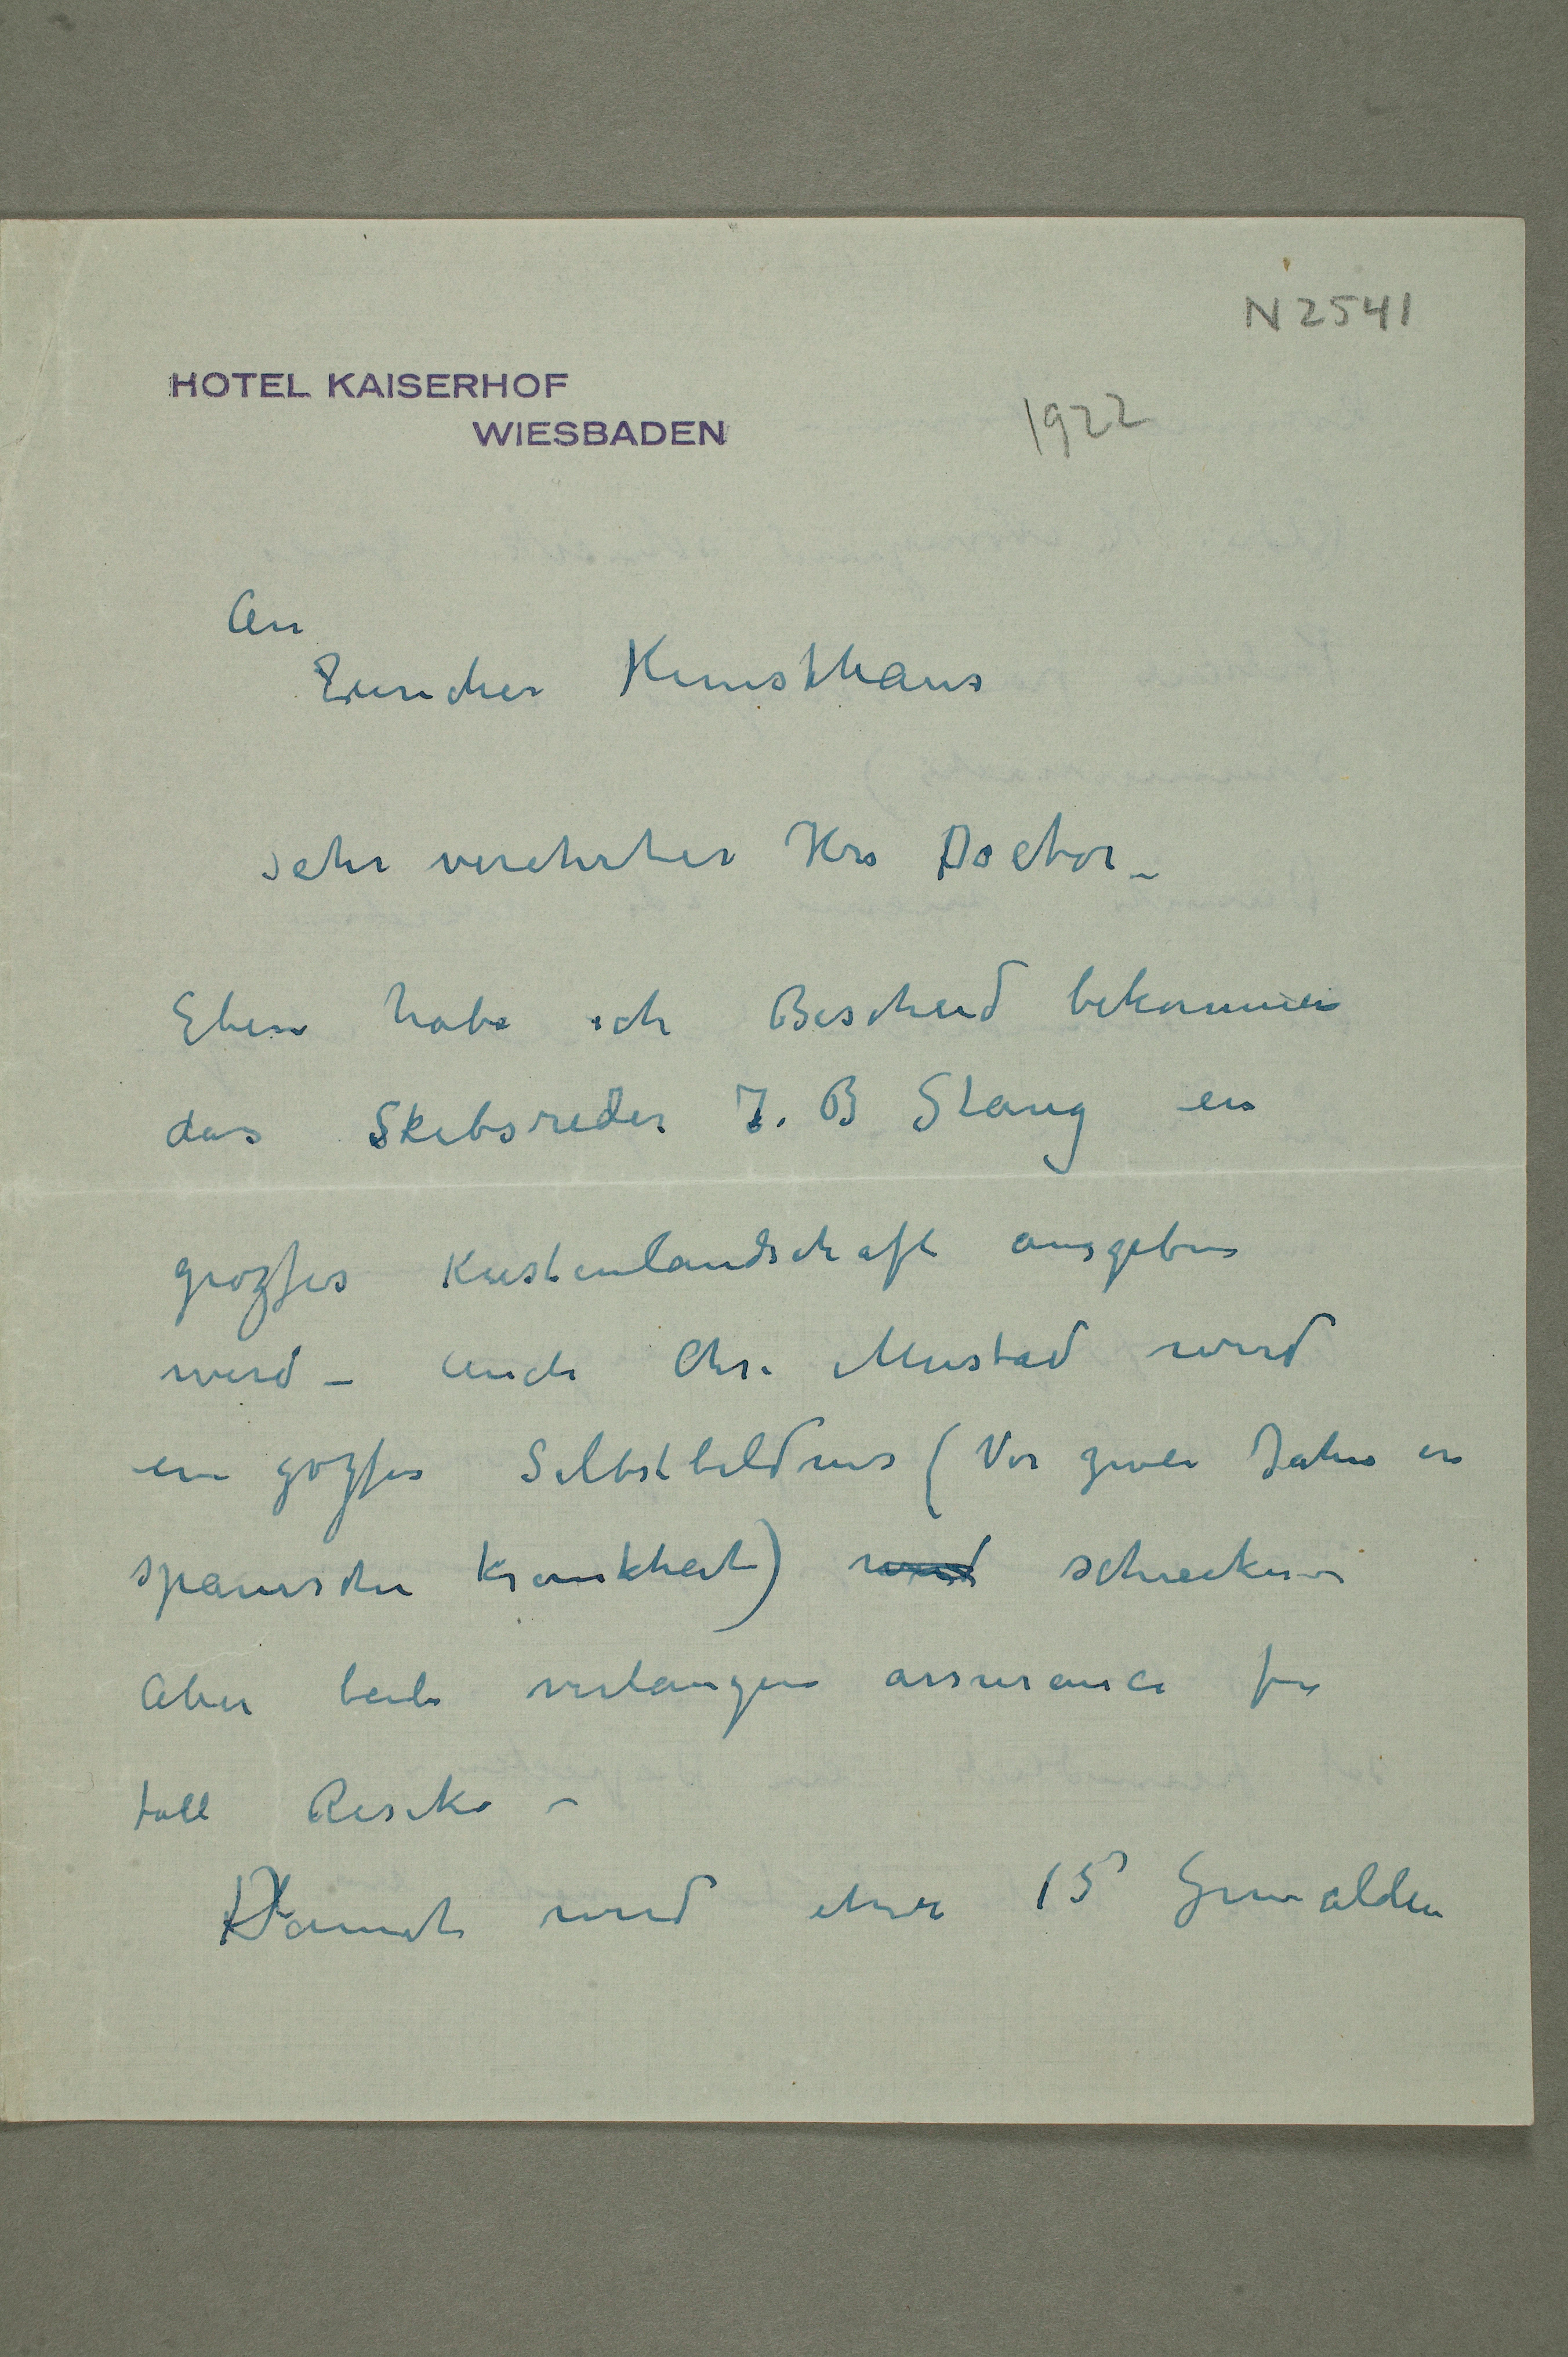 N 2541
HOTEL KAISERHOF
WIESBADEN
1922
An
Züricher Kunsthaus
sehr verehrter Hrs Doctor_
Eben habe ich Bescheid bekommen
das Skibsreder J. B Stang ein
grozses Kustenlandschaft ausgeben
wird – Auch Chr. Mustad wird
ein gozses Selbstbildnis (Vor zwei Jahre in
spanischer Krankheit) wird schicken
Aber beide verlangen assurance for
full Risiko –
Damit wird etwa 15 Gemälden